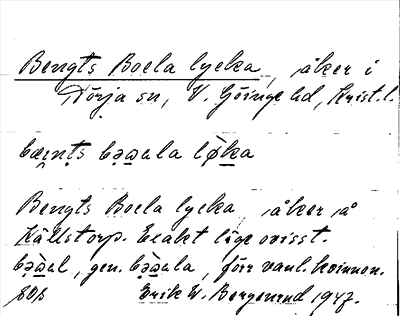 Bengts Boela lycka, åker i
Förja sn, V. Göinge hd, Krist. l.
bæi̯n̥ts bə̀ɷela lø̀ka
Bengts Boela lycka, åker å
Källstorp. Exakt läge ovisst.
bə̀ɷel, gen. bə̀ɷela, förr vanl. kvinnon.
Erik W. Bergenrud 1947.